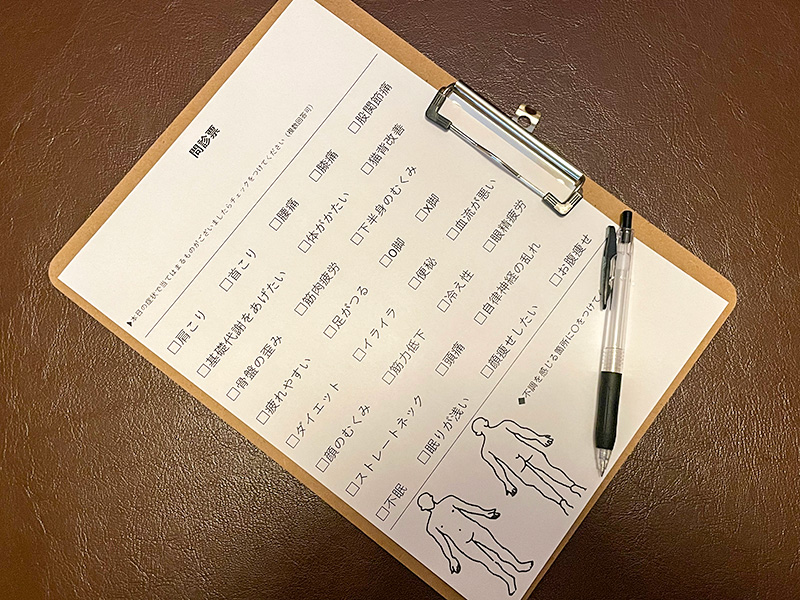 問診票
▶本日の症状で当てはまるものがございましたらチェックをつけてください（複数回答可）
□肩こり □首こり □腰痛 □膝痛 □股関節痛
□基礎代謝をあげたい □体がかたい □猫背改善
□骨盤の歪み □筋肉疲労 □下半身のむくみ
□疲れやすい □足がつる □O脚 □X脚
□ダイエット □イライラ □便秘 □血流が悪い
□顔のむくみ □筋力低下 □冷え性 □眼精疲労
□ストレートネック □頭痛 □自律神経の乱れ
□不眠 □眠りが浅い □顔痩せしたい □お腹痩せ
◆不調を感じる箇所に○をつけて